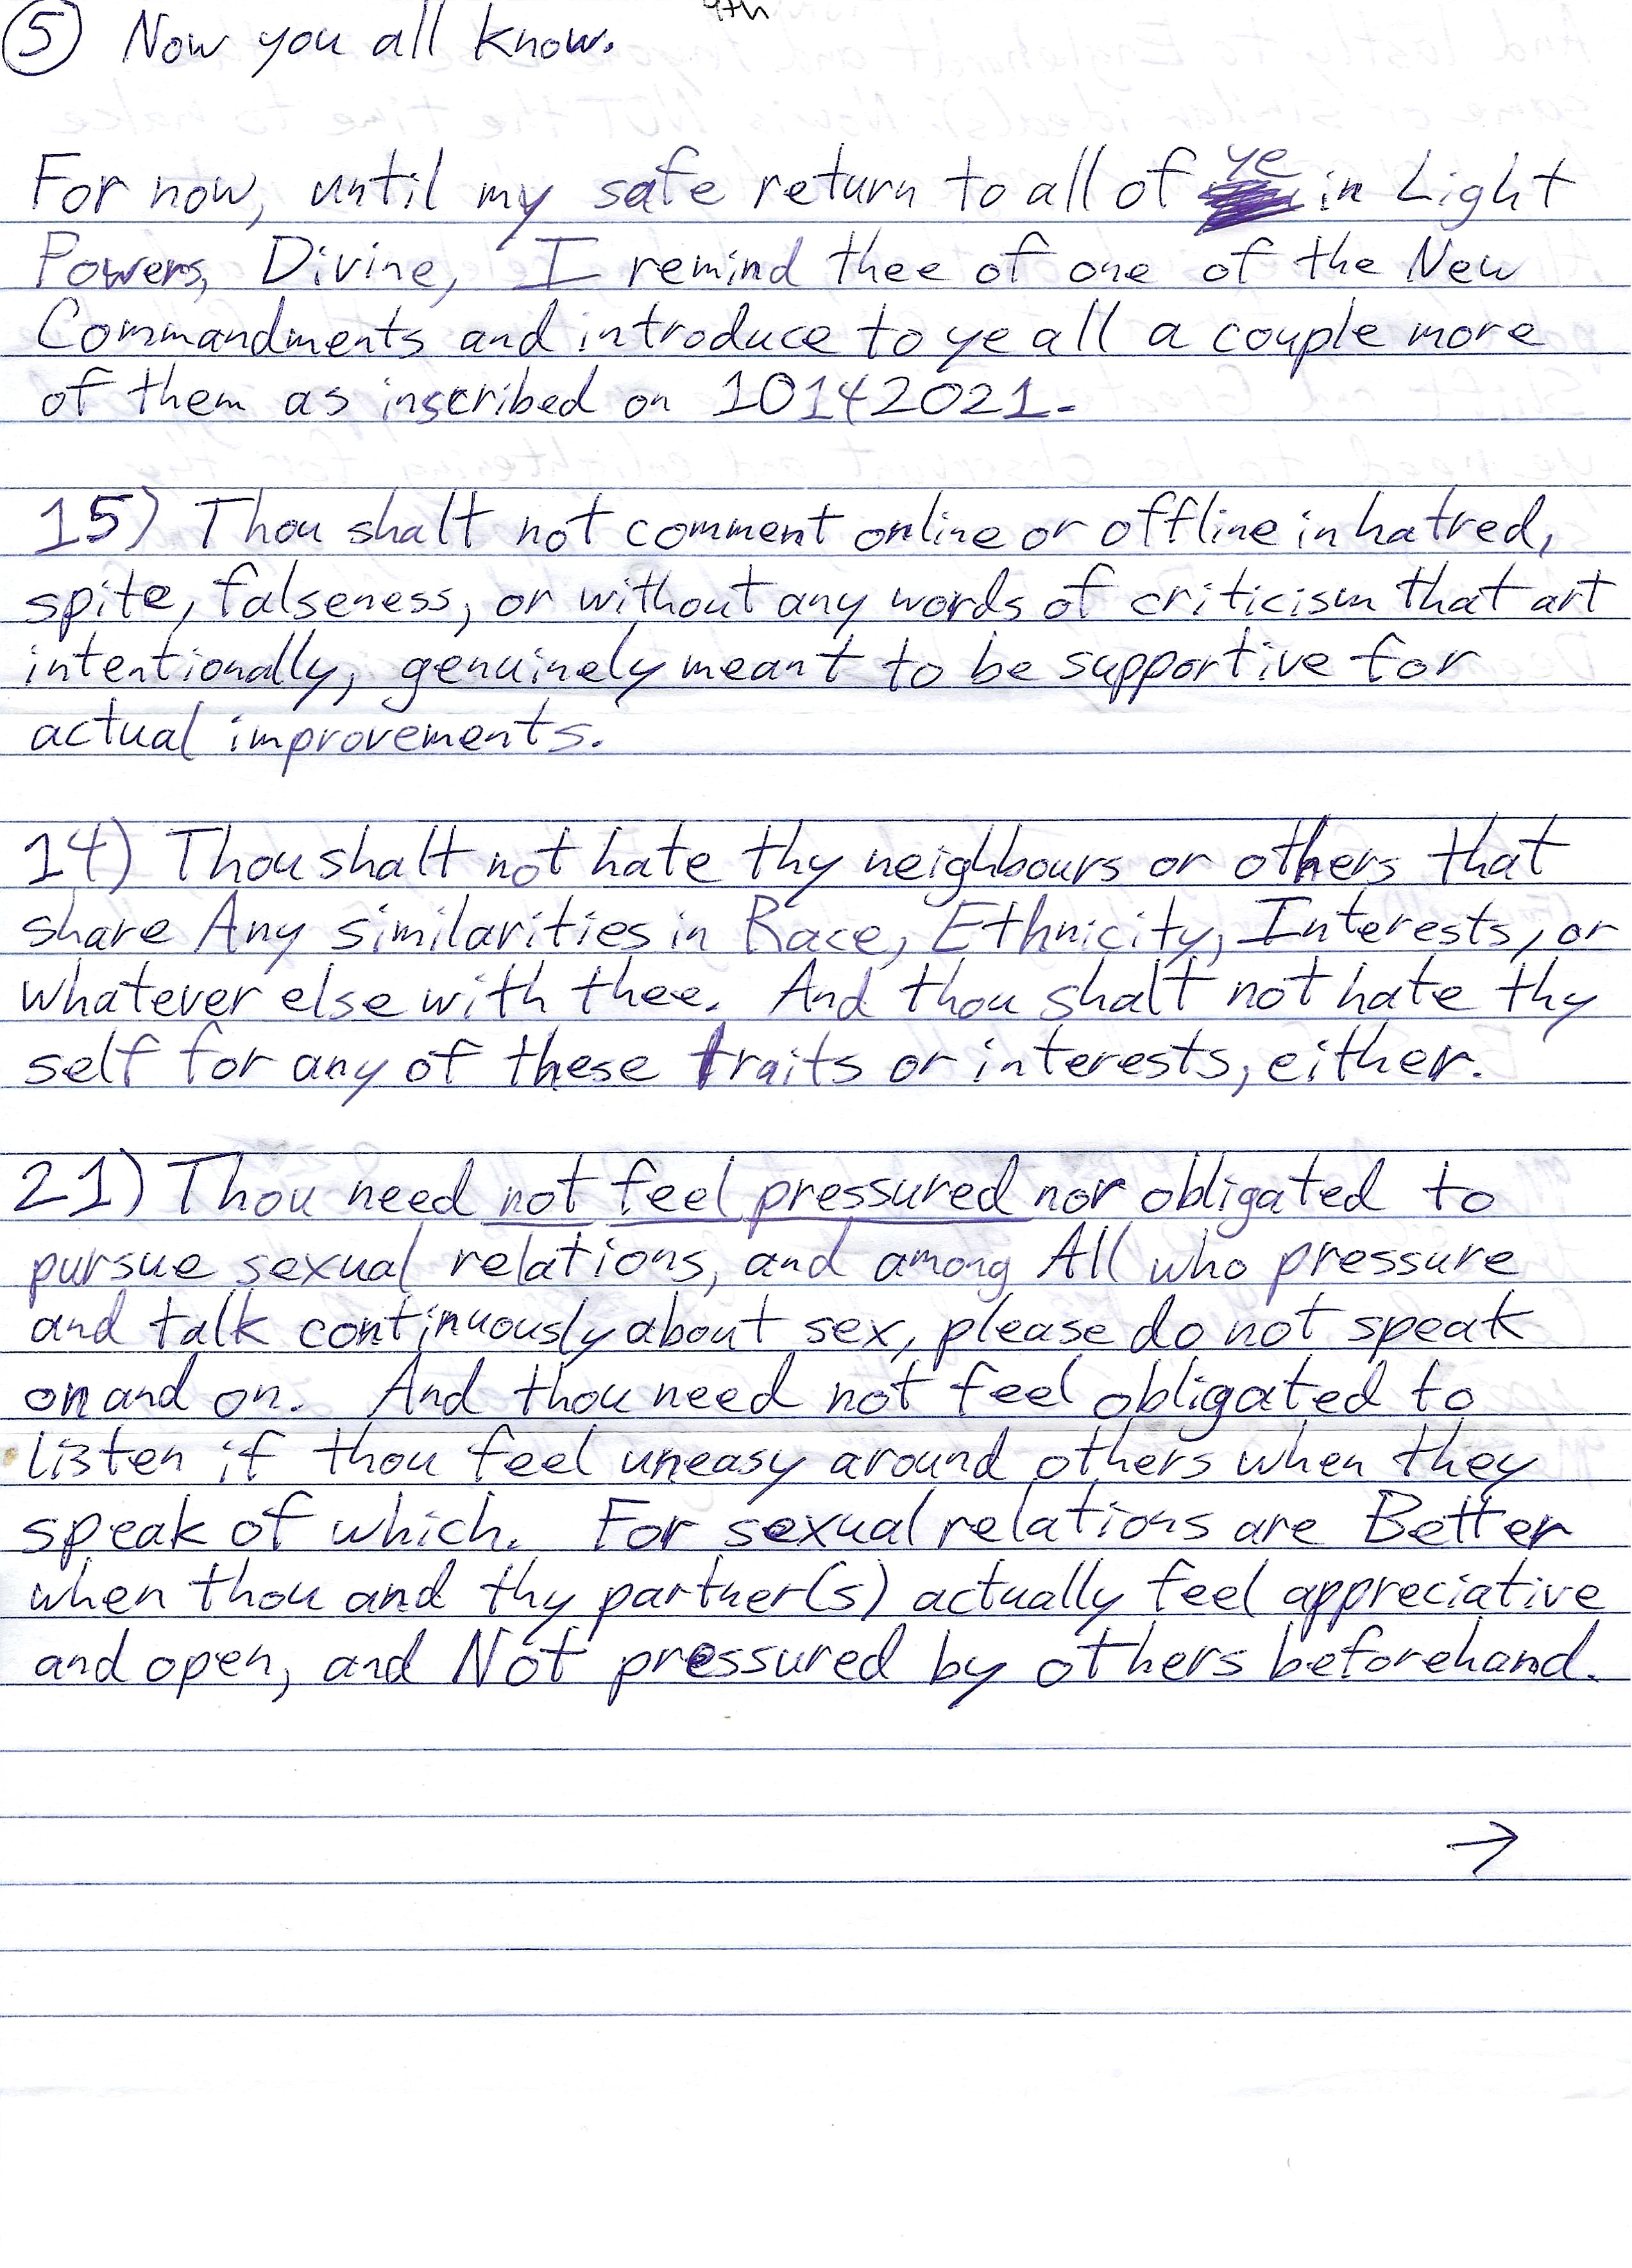 9th
5 Now you all know.
For now, until my safe return to all of ye in Light
Powers, Divine, I remind thee of one of the New
Commandments and introduce to ye all a couple more
of them as inscribed on 10142021.
15) Thou shalt not comment online or offline in hatred,
spite, falseness, or without any words of criticism that art
intentionally, genuinely meant to be supportive for
actual improvements.
14) Thou shalt not hate thy neighbours or others that
share Any similarities in Race, Ethnicity, Interests, or
whatever else with thee. And thou shalt not hate thy
self for any of these traits or interests, either.
21) Thou need not feel pressured nor obligated to
pursue sexual relations, and among All who pressure
and talk continuously about sex, please do not speak
on and on. And thou need not feel obligated to
listen if thou feel uneasy around others when they
speak of which. For sexual relations are Better
when thou and thy partner(s) actually feel appreciative
and open, and Not pressured by others beforehand.
→